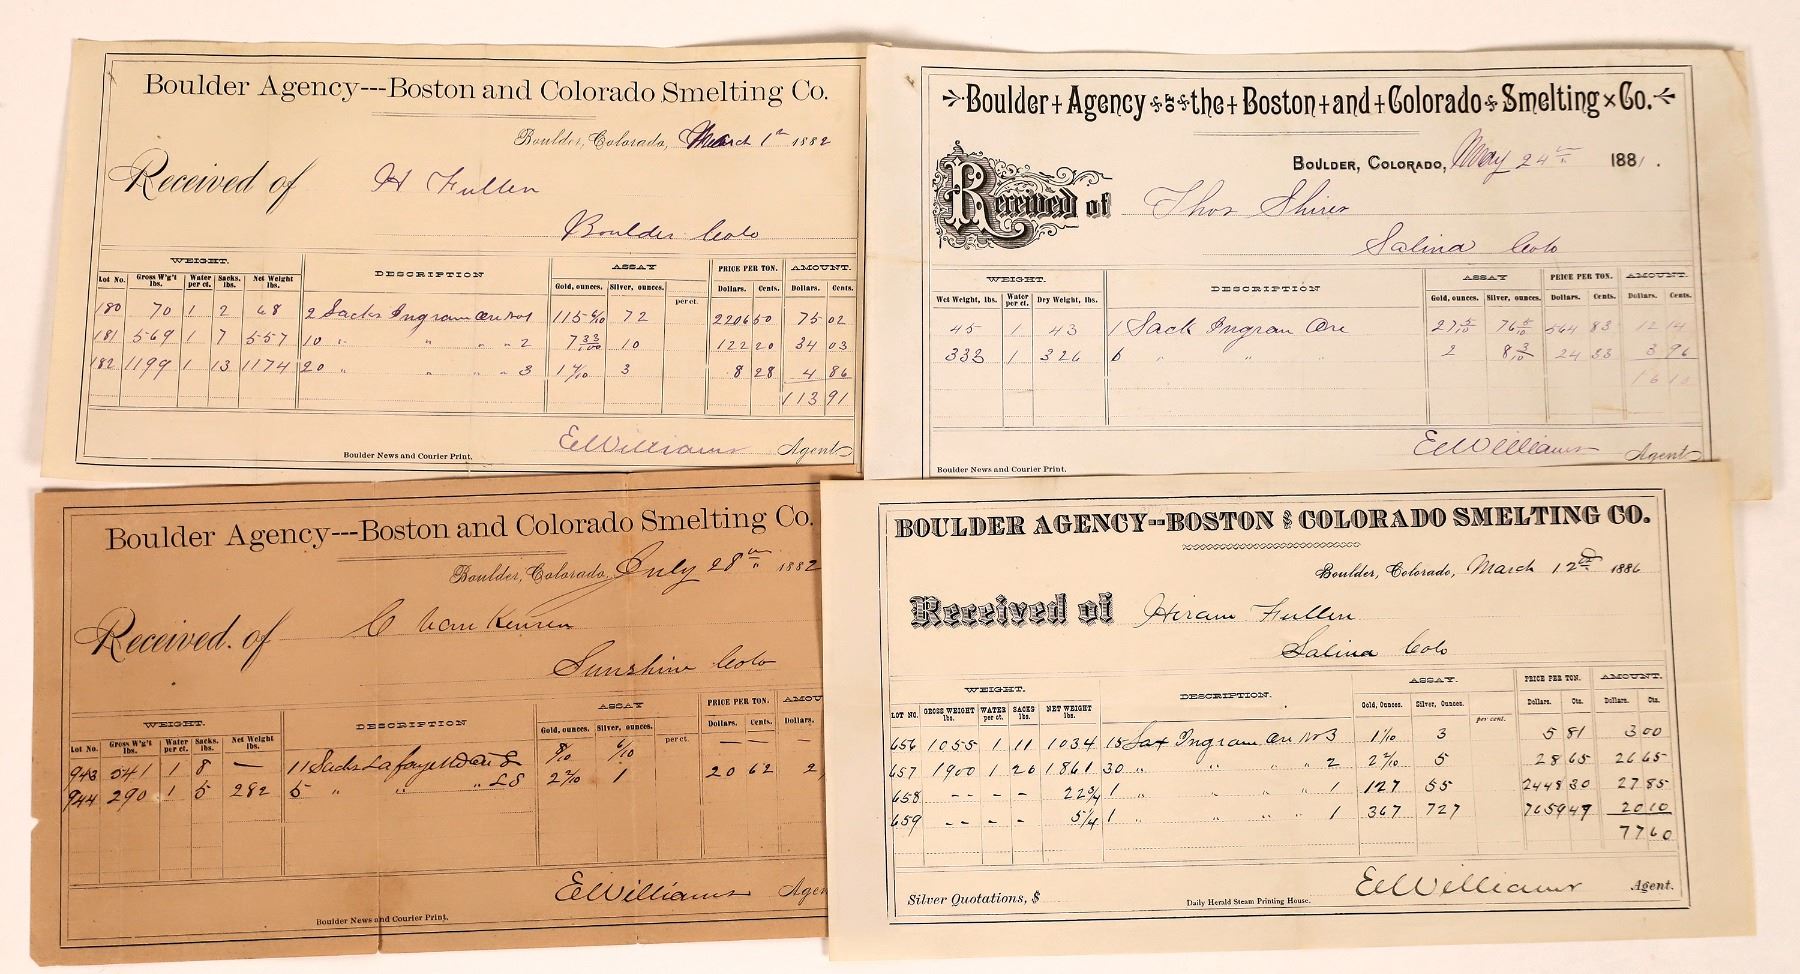 Boulder Agency---Boston and Colorado Smelting Co.
Boulder, Colorado, March 1st 1882
Received of H Fullen
Boulder Colo
WEIGHT. DESCRIPTION ASSAY PRICE PER TON. AMOUNT.
Lot No. Gross W'g't lbs. Water per ct. Sacks. lbs. Net Weight lbs. Gold, ounces. Silver, ounces. per ct. Dollars. Cents. Dollars. Cents.
180 70 1 2 68 2 Sacks Ingram Ore No 1 115 6/10 72 2206 50 75 02
181 569 1 7 557 10 " " " " 2 7 33/100 10 122 20 34 03
182 1199 1 13 1174 20 " " " " 3 3 8 28 4 86
113 91
E E Williams Agent
Boulder News and Courier Print.
Boulder Agency of the Boston and Colorado Smelting Co.
BOULDER, COLORADO, May 24th 1881.
Received of Thos Shires
Salina Colo
WEIGHT. DESCRIPTION ASSAY PRICE PER TON. AMOUNT.
Wet Weight, lbs. Water per ct. Dry Weight, lbs. Gold, ounces. Silver, ounces. Dollars. Cents. Dollars. Cents.
45 1 43 1 Sack Ingram Ore 27 5/10 76 5/10 564 83 12 14
333 1 326 6 " " " 2 8 3/10 24 33 3 96
16 10
E E Williams Agent
Boulder News and Courier Print.
Boulder Agency---Boston and Colorado Smelting Co.
Boulder, Colorado, July 28th 1882
Received of C Van Kennen
Sunshine Colo
WEIGHT. DESCRIPTION ASSAY PRICE PER TON. AMOU
Lot No. Gross W'g't lbs. Water per ct. Sacks. lbs. Net Weight lbs. Gold, ounces. Silver, ounces. per ct. Dollars. Cents. Dollars.
943 541 1 8 — 11 Sacks Lafayette 8/10 6/10 — — —
944 290 1 5 282 5 " " " LS 2 2/10 1 20 62 2
E E Williams Agen
Boulder News and Courier Print.
BOULDER AGENCY--BOSTON and COLORADO SMELTING CO.
Boulder, Colorado, March 12 1886
Received of Hiram Fullen
Salina Colo
WEIGHT. DESCRIPTION. ASSAY. PRICE PER TON. AMOUNT.
LOT NO. GROSS WEIGHT lbs. WATER per ct. SACKS lbs. NET WEIGHT lbs. Gold, Ounces. Silver, Ounces. per cent. Dollars. Cts. Dollars. Cts.
656 1055 1 11 1034 15 Sax Ingram Ore No 3 1 1/10 3 5 81 3 00
657 1900 1 20 1861 30 " " " " 2 5 28 65 26 65
658 -- - - 22 3/4 1 " " " " 1 127 55 2448 30 27 85
659 -- - - 5 1/4 1 " " " 1 367 727 7659 49 20 10
77 60
E E Williams Agent.
Silver Quotations, $
Daily Herald Steam Printing House.